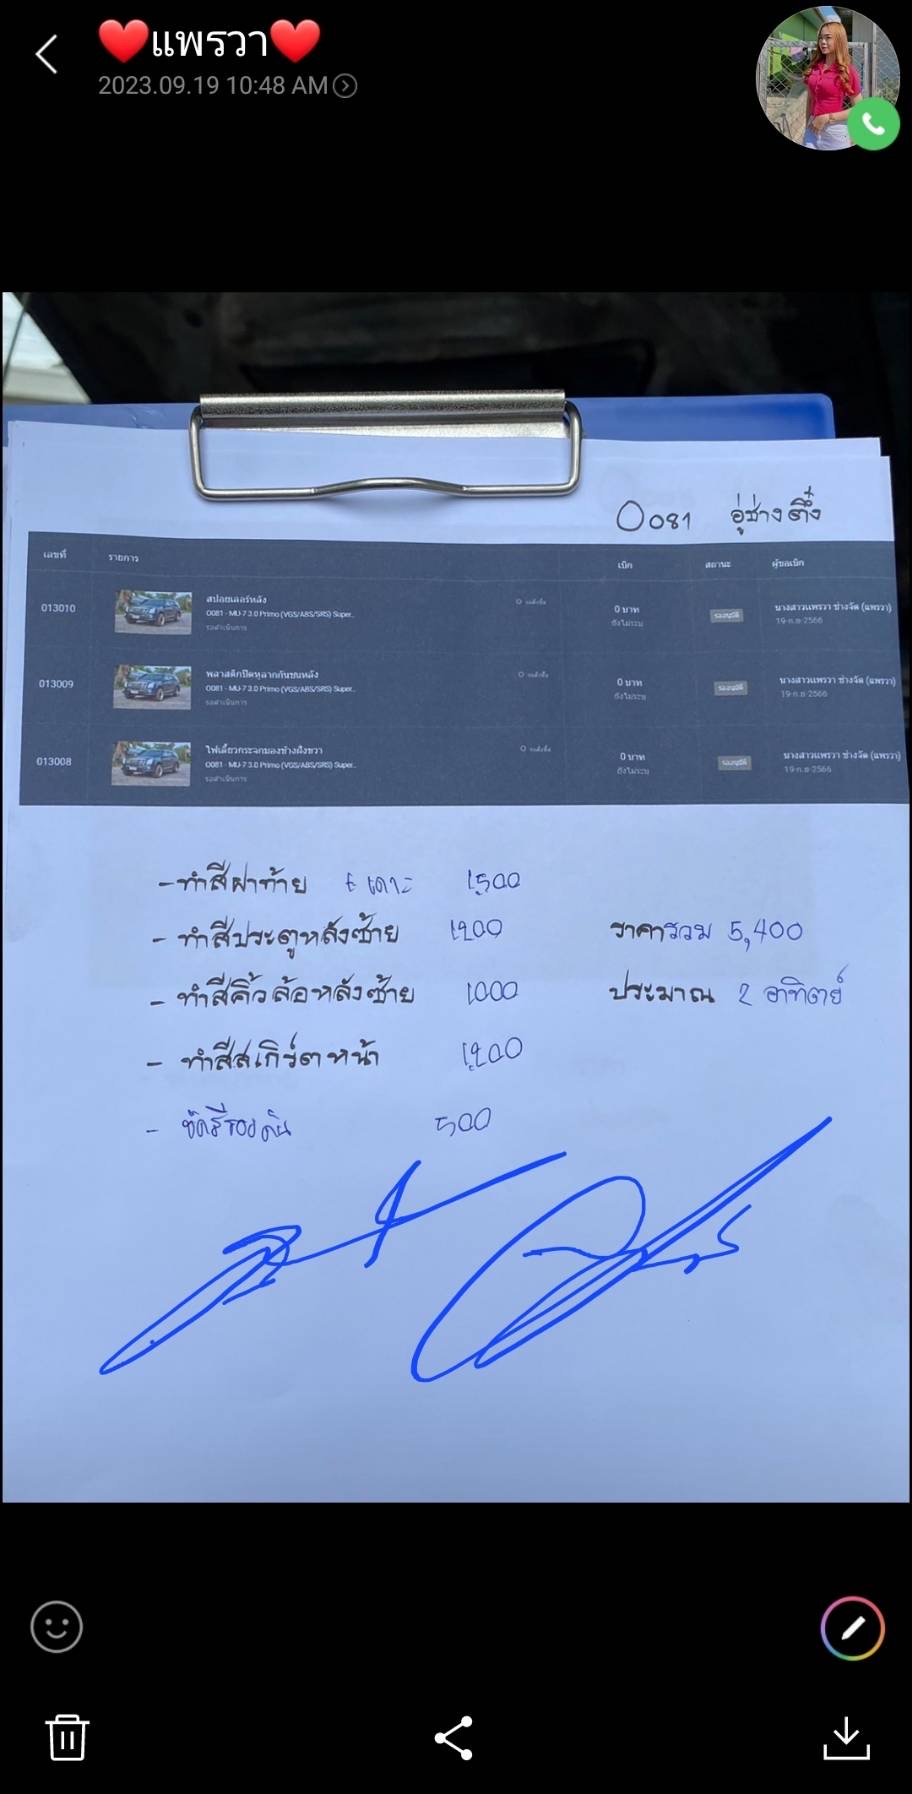 ❤️แพรวา❤️
2023.09.19 10:48 AM
0081 อู่ช่างตึ๋ง
เลขที่ รายการ เบิก สถานะ ผู้ขอเบิก
013010 สปอยเลอร์หลัง 0 บาท รออนุมัติ นางสาวแพรวา ช่างจัด (แพรวา)
0081 - MU-7 3.0 Primo (VGS/ABS/SRS) Super.. ยังไม่ระบุ 19-ก.ย-2566
รอดำเนินการ
013009 พลาสติกปิดหูลากกันชนหลัง 0 บาท รออนุมัติ นางสาวแพรวา ช่างจัด (แพรวา)
0081 - MU-7 3.0 Primo (VGS/ABS/SRS) Super.. ยังไม่ระบุ 19-ก.ย-2566
รอดำเนินการ
013008 ไฟเลี้ยวกระจกมองข้างฝั่งขวา 0 บาท รออนุมัติ นางสาวแพรวา ช่างจัด (แพรวา)
0081 - MU-7 3.0 Primo (VGS/ABS/SRS) Super.. ยังไม่ระบุ 19-ก.ย-2566
รอดำเนินการ
- ทำสีฝาท้าย + เคาะ 1,500
- ทำสีประตูหลังซ้าย 1200 ราคารวม 5,400
- ทำสีคิ้วล้อหลังซ้าย 1000 ประมาณ 2 อาทิตย์
- ทำสีสเกิร์ตหน้า 1,200
- ขัดสีรอบคัน 500